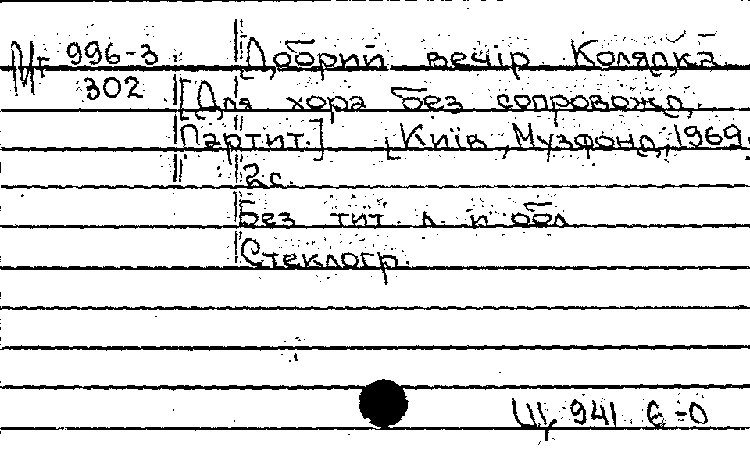 Мг 996-3 Добрий вечір Колядка
302 [Для хора без сопровожд.
Партит.] [Київ, Музфонд, 1969.
2с.
Без тит. л. и обл
Стеклогр.
Ц 941 6-0